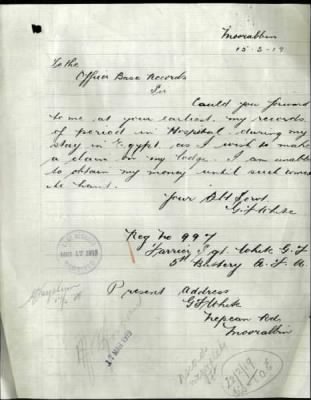 Moorabbin
15-3-19
To the
Officer Base Records
Sir
Could you forward
to me at your earliest my records
of period in Hospital during my
stay in Egypt as I wish to make
a claim on my lodge. I am unable
to obtain my money until such comes
to hand.
Your Obt Servt
G F White
Reg No 997
Farrier Sgt White G. F.
5th Battery A. F. A.
Present Address
G F White
Nepean Rd.
Moorabbin
MAR 17 1919
17 MAR 1919